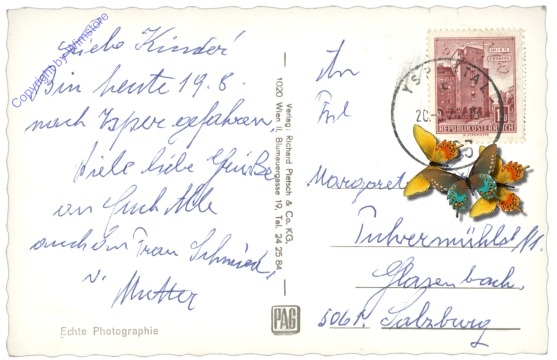 Copyright by Wimstore
Liebe Kinder!
Bin heute 19.8.
nach Isper gefahren,
Viele liebe Grüße
an Euch Alle
auch an Frau Schmied,
v. Mutter
Echte Photographie
Verlag: Richard Pietsch & Co. KG,
1020 Wien II, Blumauergasse 19, Tel. 24 25 84
PAG
YSPERTAL
REPUBLIK ÖSTERREICH
An
Frl
Margaret
Pulvermühlst
Glasenbach
5061 Salzburg